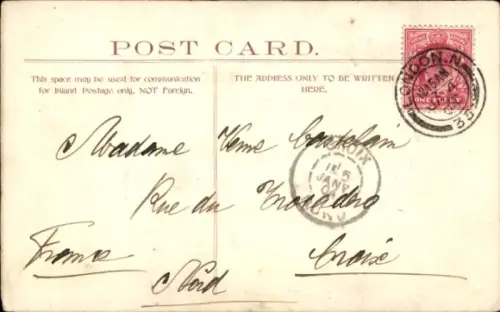 POST CARD.
This space may be used for communication
for Inland Postage only, NOT Foreign.
THE ADDRESS ONLY TO BE WRITTEN
HERE.
LONDON. N.
35
CROIX
JANV
NORD
Madame Veuve
Rue du Trocadéro
France
Croix
Nord